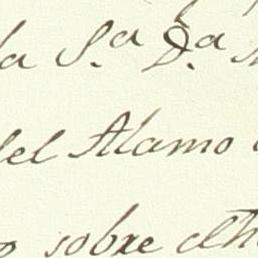 la S.ª D.ª
del Alamo
sobre el